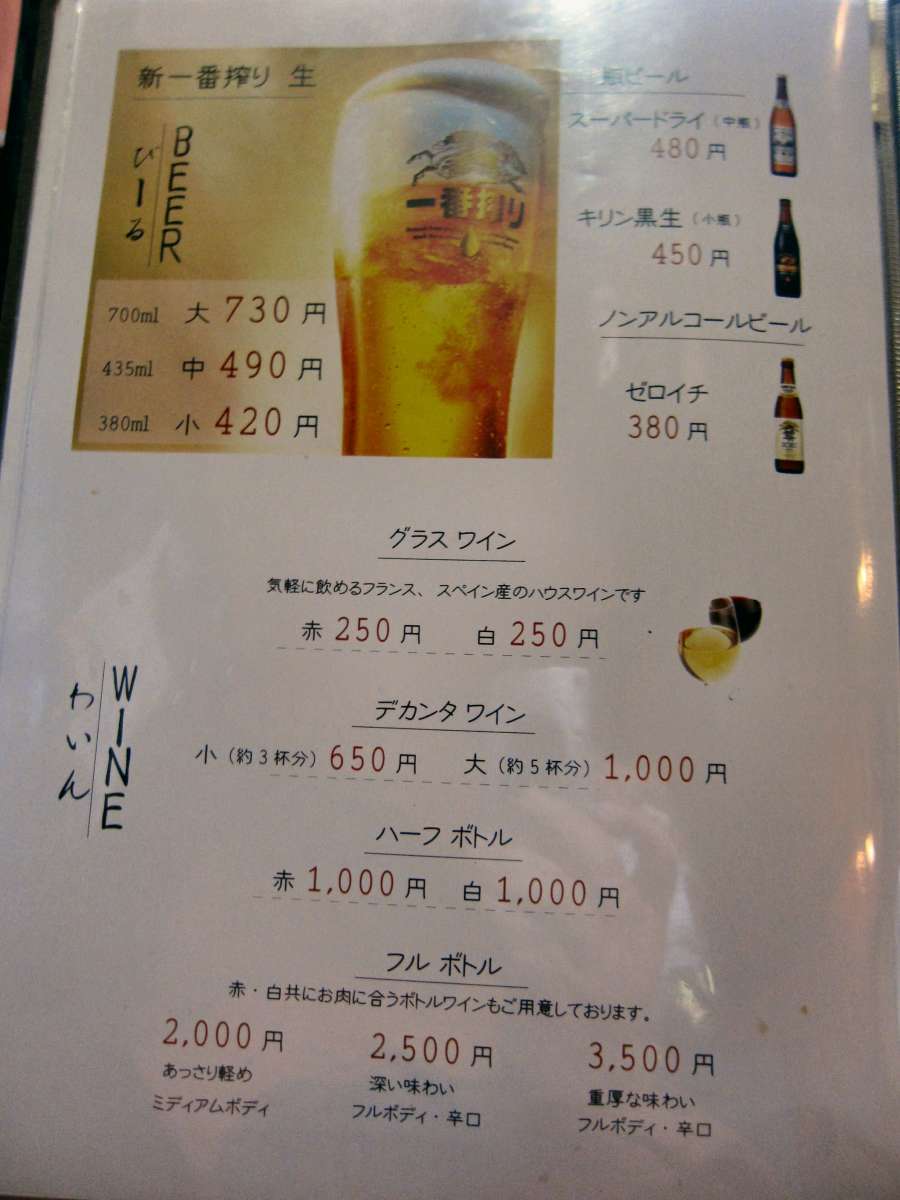 新一番搾り 生
BEER
びーる
一番搾り
700ml 大 730 円
435ml 中 490 円
380ml 小 420 円
瓶ビール
スーパードライ（中瓶）
480 円
キリン黒生（小瓶）
450 円
ノンアルコールビール
ゼロイチ
380 円
WINE
わいん
グラス ワイン
気軽に飲めるフランス、スペイン産のハウスワインです
赤 250 円 白 250 円
デカンタ ワイン
小（約3杯分）650 円 大（約5杯分）1,000 円
ハーフ ボトル
赤 1,000 円 白 1,000 円
フル ボトル
赤・白共にお肉に合うボトルワインもご用意しております。
2,000 円 2,500 円 3,500 円
あっさり軽め 深い味わい 重厚な味わい
ミディアムボディ フルボディ・辛口 フルボディ・辛口